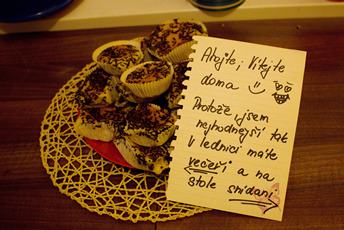 Ahojte, Vítejte
doma
Protože jsem
nejhodnější tak
v lednici máte
večeři a na
stole snídani